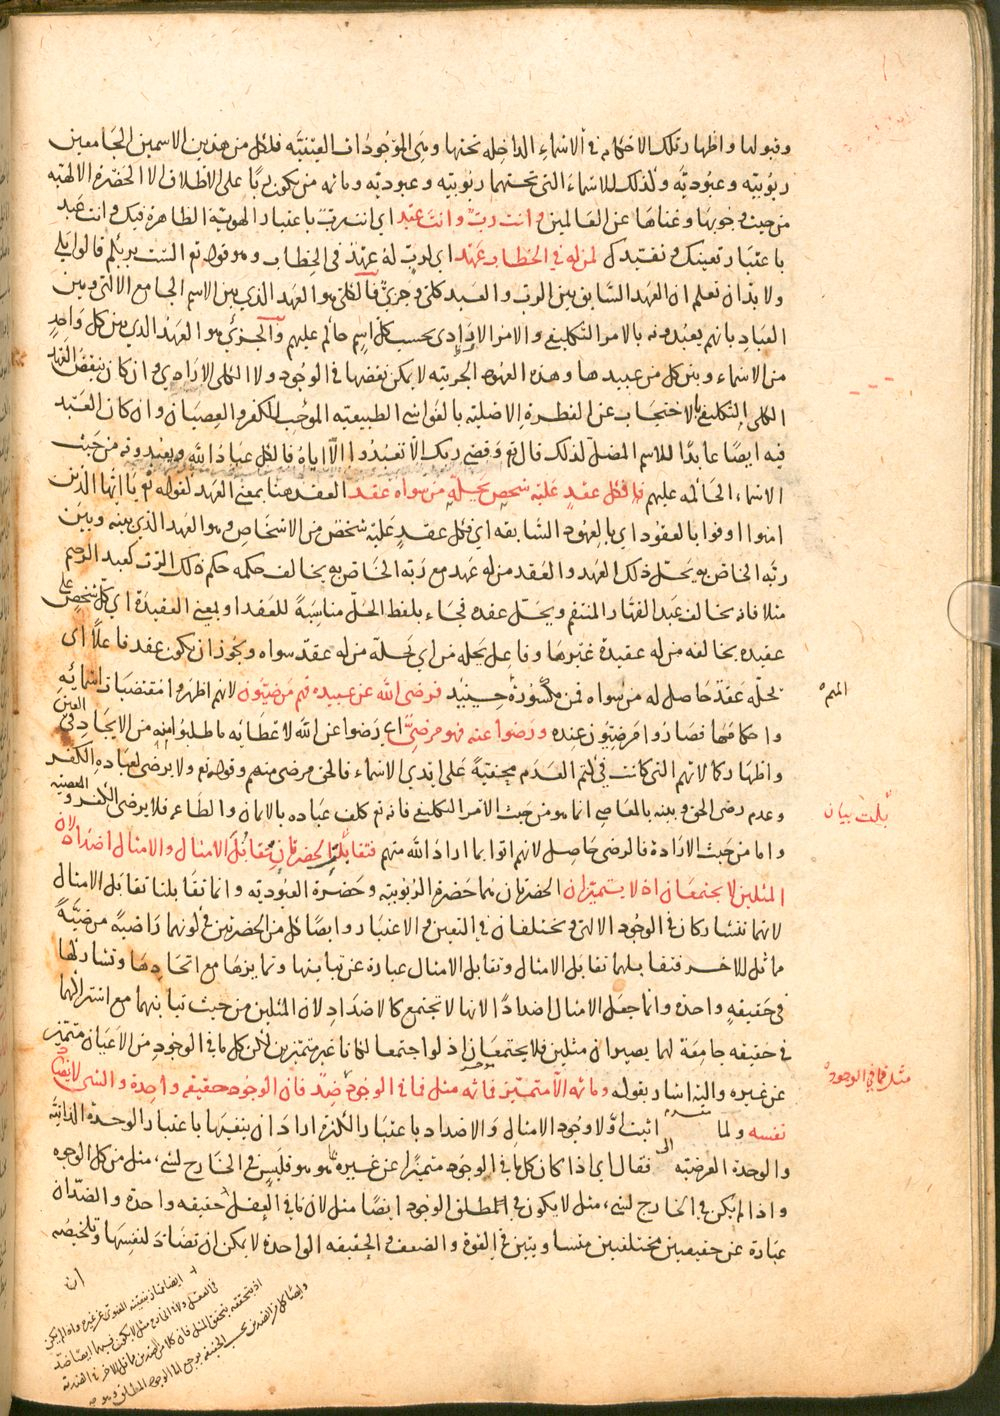 وقبولها واظهار تلك الاحكام في الاشياء الداخله تحتها وهي الموجودات العينيه فلكل من هذين الاسمين الجامعين
ربوبيّه وعبوديّه وكذلك للاسماء التى تحتهما ربوبيه وعبوديه وما ثم من يكون ربًا على الاطلاق الا الحضرة الالهيّه
من حيث وجوبها وغناها عن العالمين وانت ربّ وانت عبد اى انت ربّ باعتبار الهوية الظاهرة فيك وانت عبد
باعتبار تعينك وتقيدك لمن له في الخطاب عهد اى لربٍ له عهد في الخطاب وهو قوله تع الست بربكم قالوا بلى
ولا بدّ ان تعلم ان العهد السابق بين الرب والعبد كلى وجزئى فالكلى هو العهد الذي بين الاسم الجامع الالهى وبين
العباد بانهم يعبدونه بالامر التكليفى والامر الارادى بحسب كل اسم حاكم عليهم والجزئى هو العهد الذي بين كل واحدٍ
من الاسماء وبين كل من عبيدها وهذه العهود الجزئيه لا يمكن نقضها في الوجود ولا الكلى الارادي وان كان ينقض العهد
الكلى التكليفى بالاحتجاب عن الفطرة الاصلية بالغواشي الطبيعيه الموجب للكفر والعصيان وان كان العبد
فيه ايضًا عابدًا للاسم المضلّ لذلك قال تع وقضى ربك الّا تعبدوا الّا اياه فالكل عباد الله ويعبدونه من حيث
الاسماء الحاكمه عليهم فكل عقدٍ عليه شخصٍ يحلّه من سواه عقد العقد هنا بمعنى العهد لقوله تع يا ايها الذين
امنوا اوفوا بالعقود اي بالعهود السابقه اى فكل عقدٍ عليه شخص من الاشخاص وهو العهد الذي بينه وبين
ربّه الخاص به يحلّ ذلك العهد والعقد من له عهد مع ربّه الخاص به يخالف حكمه حكم ذلك الرب كعبد الرحيم
مثلا فانه يخالف عبد القهار المنتقم ويحلّ عقده فجاء بلفظ الحلّ مناسبةً للعقد او بمعنى العقيدة اى كل شخص على
عقيده يخالفه من له عقيدة غيرها وفاعل يحله من اى يحله من له عقد سواه ويجوز ان يكون عقد فاعلًا اى
يحلّه عقد حاصل له من سواه فمن مكسورة حينئذ فرضى الله عن عبيده فهم مرضيّون لانهم اظهروا مقتضيات اسمائه
واحكامها فصاروا مرضيّون عنده ورضوا عنه فهو مرضيٌّ اى رضوا عن الله لاعطائه ما طلبوا منه من الايجاد في العين
واظهار كمالاتهم التى كانت في كتم العدم مختفيةً على ايدي الاسماء فالحق مرضى منهم وقوله تع ولا يرضى لعباده الكفر
وعدم رضى الحق وبينه بالمعاصى انما هو من حيث الامر التكليفى فانه تع كلف عباده بالايمان والطاعه فلا يرضى الكفر والمعصيه
واما من حيث الارادة فالرضى حاصل لانهم اتوا بما اراد الله منهم فتقابلت الحضرتان تقابُل الامثال والامثال اضداد لان
المثلين لا يجتمعان اذ لا يتميزان الحضرتان هما حضرة الربوبيه وحضرة العبوديه وانما تقابلتا تقابل الامثال
لانهما تتشاركان في الوجود الالهى وتختلفان في التعين والاعتبار وايضًا كل من الحضرتين في كونهما راضيةً مرضيةً
مماثل للاخر فتقابلهما تقابل الامثال وتقابل الامثال عبارة عن تباينها وتمايزها مع اتحادها وتشاركها
في حقيقهٍ واحدة وانما جعل الامثال اضدادًا لانها لا تجتمع كالاضداد لان المثلين من حيث تباينهما مع اشتراكهما
في حقيقه جامعة لهما يصيران مثلين فلا يجتمعان اذ لو اجتمعا لكانا غير متميزين لكن كل ما في الوجود من الاعيان متميّز
عن غيره واليه اشار بقوله وما ثمّ الّا متميّز فما ثمه مثل فما في الوجود ضدّ فان الوجود حقيقه واحدة والشى لا يضاد
نفسه ولما اثبت اوّلا وجود الامثال والاضداد باعتبار الكثرة اراد ان ينفيها باعتبار الوحدة الذاتيّه
والوحدة العرضيّه فقال اى اذا كان كل ما في الوجود متميزًا عن غيره بما هو هو فليس في الخارج لشى مثل من كل الوجوه
واذا لم يكن في الخارج لشى مثل لا يكون في المطلق الوجود ايضًا مثل لان ما في العقل حقيقه واحدة والضدان
عبارة عن حقيقتين مختلفتين متساويتين في القوة والضعف والحقيقه الواحدة لا يمكن ان تضاد لنفسها وتلخيصه
ان
المنم
بلت بيان
مثل فما في الوجود